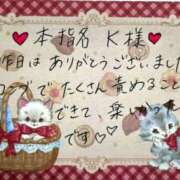 ♥本指名 K様♥
昨日は ありがとうございました
たくさん責めること
できて、楽し
です♡